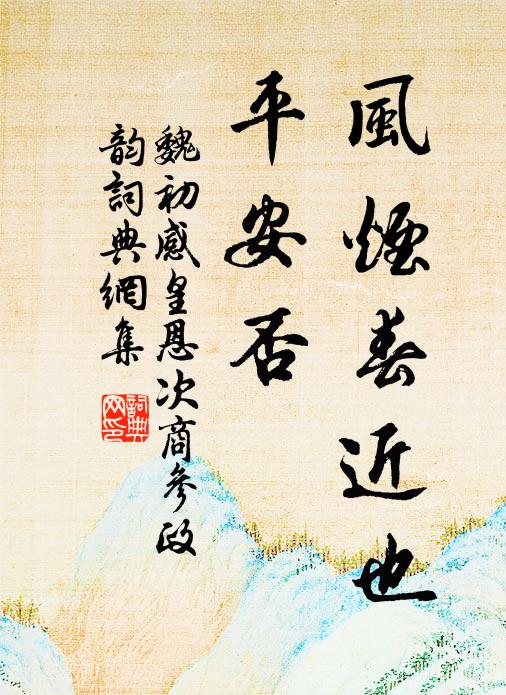 風煙春近也
平安否
魏初感皇恩次商參政
韵詞典網集
詞典網印